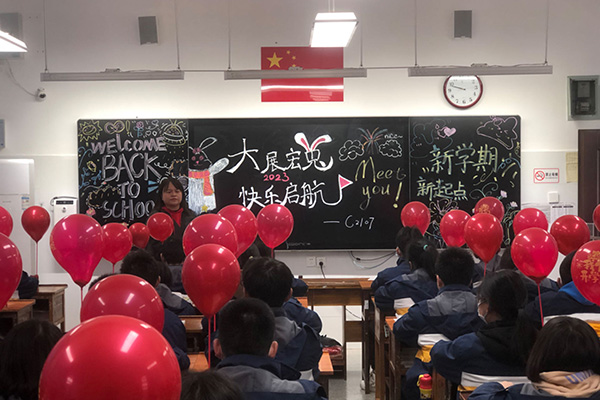 WELCOME
BACK
TO
SCHOOL
大展宏兔
2023
快乐启航
C2107
Meet
you!
新学期
新起点